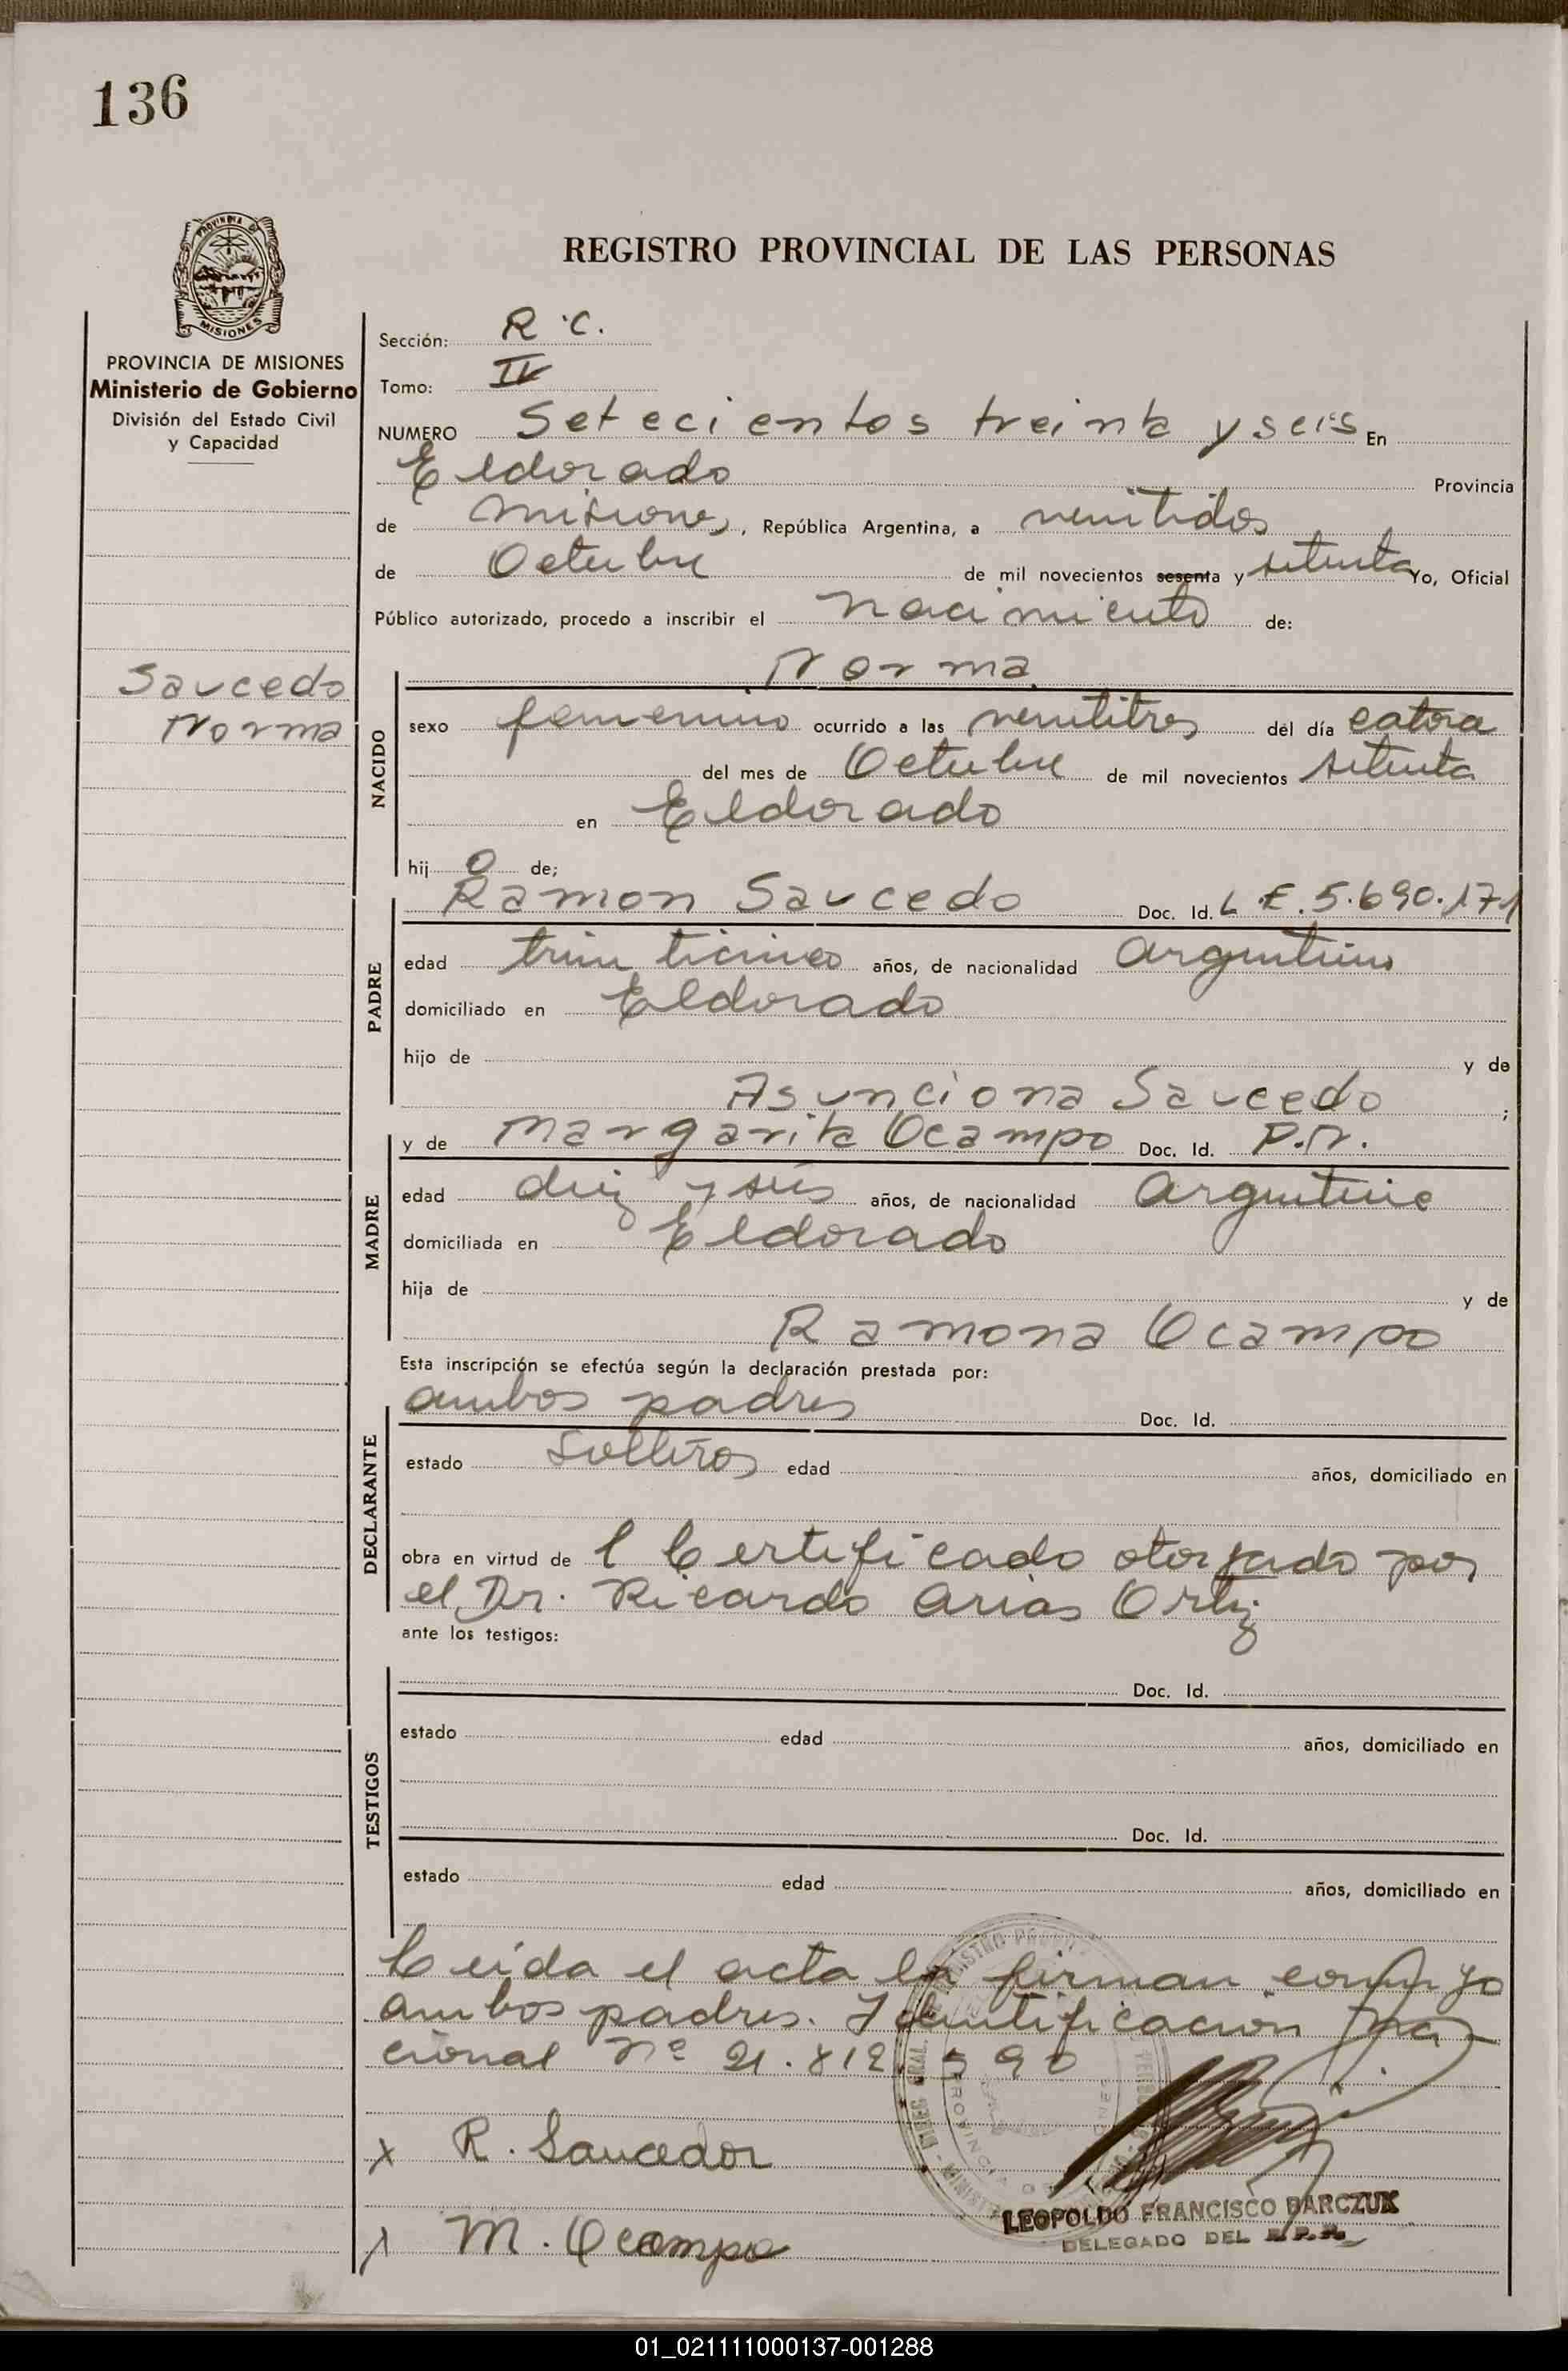 136
PROVINCIA DE MISIONES
Ministerio de Gobierno
División del Estado Civil
y Capacidad
Saucedo
Norma
REGISTRO PROVINCIAL DE LAS PERSONAS
Sección: R.C.
Tomo: IV
NUMERO Setecientos treinta y seis En
Eldorado Provincia
de Misiones, República Argentina, a veintidos
de Octubre de mil novecientos sesenta y setenta Yo, Oficial
Público autorizado, procedo a inscribir el nacimiento de:
NACIDO
Norma
sexo femenino ocurrido a las veintitres del día catorce
del mes de Octubre de mil novecientos setenta
en Eldorado
hij o de;
PADRE
Ramon Saucedo Doc. Id. L.E. 5.690.171
edad treinticinco años, de nacionalidad argentino
domiciliado en Eldorado
hijo de y de
Asunciona Saucedo ;
MADRE
y de Margarita Ocampo Doc. Id. P.N.
edad diez y seis años, de nacionalidad argentina
domiciliada en Eldorado
hija de y de
Ramona Ocampo
Esta inscripción se efectúa según la declaración prestada por:
DECLARANTE
ambos padres Doc. Id.
estado solteros edad años, domiciliado en
obra en virtud de l Certificado otorgado por
el Dr. Ricardo Arias Ortiz
ante los testigos:
TESTIGOS
Doc. Id.
estado edad años, domiciliado en
Doc. Id.
estado edad años, domiciliado en
Leida el acta la firman conmigo
ambos padres. Identificacion Na
cional Nº 21.812.590
x R. Saucedor
x M. Ocampo
LEOPOLDO FRANCISCO BARCZUK
DELEGADO DEL R.P.P.
01_021111000137-001288